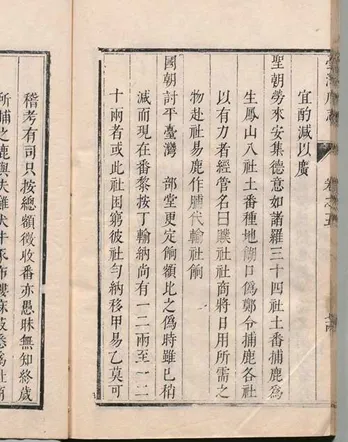 卷之五
宜酌減以廣
聖朝勞來安集德意如諸羅三十四社土番捕鹿爲
生鳳山八社土番種地餬口僞鄭令捕鹿各社
以有力者經管名曰贌社社商將日用所需之
物赴社易鹿作脯代輸社餉
國朝討平臺灣　部堂更定餉額比之僞時雖已稍
減而現在番黎按丁輸納尚有一二兩至一二
十兩者或此社困窮彼社勻納移甲易乙莫可
稽考有司只按總額徵收番亦愚昧無知終歲
所捕之鹿與夫雞犬牛豕布縷麻